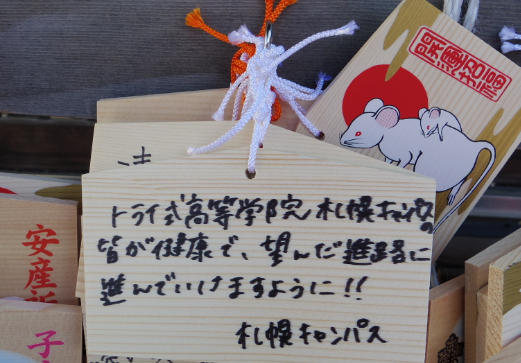 トライ式高等学院 札幌キャンパスの
皆が健康で、望んだ進路に
進んでいけますように!!
札幌キャンパス
開運招福
安産
子